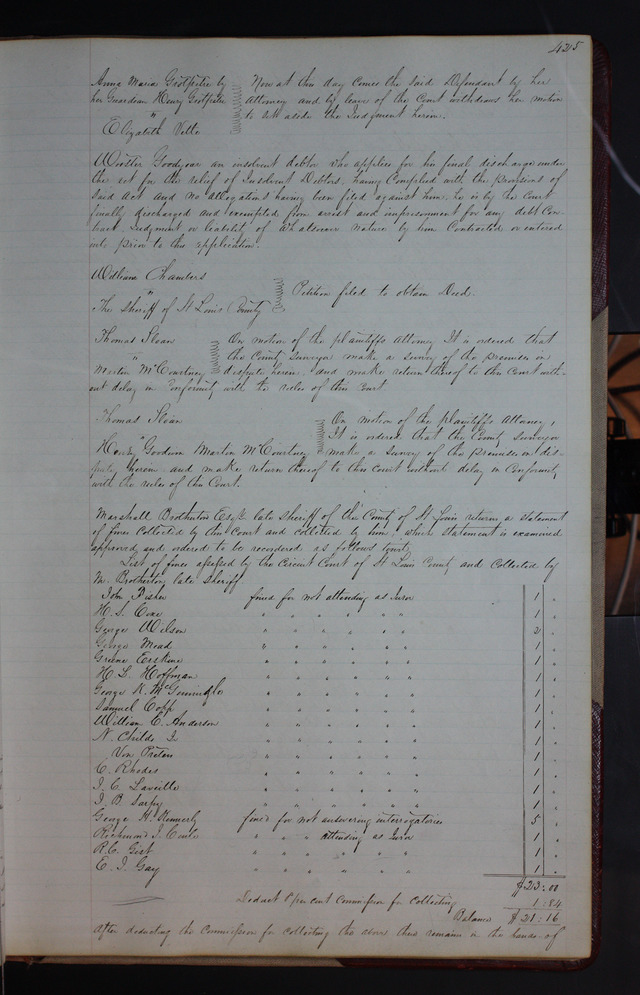 425
Anna Maria Gestpetre by
her Guardian Henry
"
Elizabeth Velte
Now at this day comes the said Defendant by her
attorney and by leave of the Court withdraws her motion
to set aside the Judgment herein.
Goodyear an insolvent debtor who applies for his final discharge under
the act for the relief of Insolvent Debtors, having Complied with the provisions of
said act and no allegations having been filed against him, he is by the Court
finally discharged and exempted from arrest and imprisonment for any debt Con-
tract, Judgment or liability of whatsoever nature by him Contracted or entered
into prior to this application.
William Chambers
"
The Sheriff of St Louis County
Petition filed to obtain Deed.
Thomas Sloan
"
Martin McCourtney
On motion of the plaintiffs attorney It is ordered that
the County Surveyor make a survey of the premises in
dispute herein, and make return thereof to this Court with-
out delay in Conformity with the rules of this Court
Thomas Sloan
"
Goodwin Martin McCourtney
On motion of the Plaintiffs Attorney,
It is ordered that the County Surveyor
make a survey of the premises in dis-
pute herein and make return thereof to this Court without delay in Conformity
with the rules of this Court.
Marshall Brotherton Esqr. late Sheriff of the County of St Louis returns a statement
of fines Collected by this Court and collected by him, which statement is examined
approved, and ordered to be recorded as follows towit;
List of fines assessed by the Circuit Court of St Louis County and Collected by
M. Brotherton late Sheriff
John Fisher fined for not attending as Juror 1 .
H. S. Coxe " " " " " " 1 .
George Wilson " " " " " " 2 .
George Mead " " " " " " 1 .
Greene Erskine " " " " " " 1 .
H. L. Hoffman " " " " " " 1 .
George K. " " " " " " 1 .
Samuel Copp " " " " " " 1 .
William C. Anderson " " " " " " 1 .
N. Childs Jr. " " " " " " 1 .
Von " " " " " " 1 .
C. Rhodes " " " " " " 1 .
J. C. Laveille " " " " " " 1 .
J. B. Sarpy " " " " " " 1 .
George H. Kennerly fined for not answering interrogatories 5 .
Richmond J. " " " attending as Juror 1 .
R. C. Gist " " " " " " 1 .
E. J. Gay " " " " " " 1 .
$23.00
Deduct 8 per cent Commission for Collecting 1:84
Balance $21:16
After deducting the Commission for collecting the above there remains in the hands of